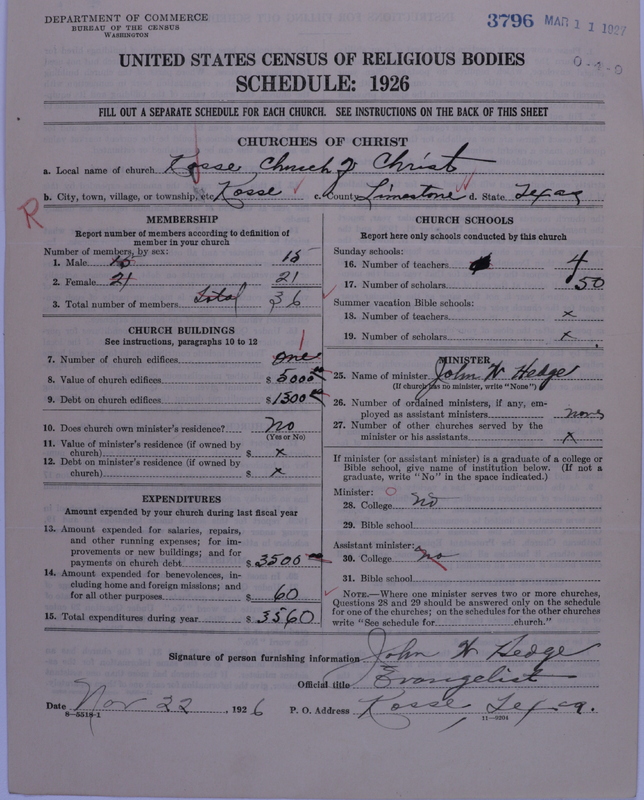 DEPARTMENT OF COMMERCE
BUREAU OF THE CENSUS
WASHINGTON
3796 MAR 11 1927
0-4-0
UNITED STATES CENSUS OF RELIGIOUS BODIES
SCHEDULE: 1926
FILL OUT A SEPARATE SCHEDULE FOR EACH CHURCH. SEE INSTRUCTIONS ON THE BACK OF THIS SHEET
CHURCHES OF CHRIST
a. Local name of church Kosse Church of Christ
b. City, town, village, or township, etc. Kosse c. County Limestone d. State Texas
R
MEMBERSHIP
Report number of members according to definition of
member in your church
Number of members, by sex:
1. Male 15 15
2. Female 21 21
3. Total number of members Total 36
CHURCH BUILDINGS
See instructions, paragraphs 10 to 12
7. Number of church edifices one 1
8. Value of church edifices $ 5000
9. Debt on church edifices $ 1300
10. Does church own minister's residence? No
(Yes or No)
11. Value of minister's residence (if owned by
church) $ x
12. Debt on minister's residence (if owned by
church) $ x
EXPENDITURES
Amount expended by your church during last fiscal year
13. Amount expended for salaries, repairs,
and other running expenses; for im-
provements or new buildings; and for
payments on church debt $ 3500
14. Amount expended for benevolences, in-
cluding home and foreign missions; and
for all other purposes $ 60
15. Total expenditures during year $ 3560
CHURCH SCHOOLS
Report here only schools conducted by this church
Sunday schools:
16. Number of teachers 4
17. Number of scholars 50
Summer vacation Bible schools:
18. Number of teachers x
19. Number of scholars x
MINISTER
25. Name of minister John W Hedge
(If church has no minister, write "None")
26. Number of ordained ministers, if any, em-
ployed as assistant ministers none
27. Number of other churches served by the
minister or his assistants x
If minister (or assistant minister) is a graduate of a college or
Bible school, give name of institution below. (If not a
graduate, write "No" in the space indicated.)
Minister:
28. College no
29. Bible school
Assistant minister:
30. College no
31. Bible school
NOTE.—Where one minister serves two or more churches,
Questions 28 and 29 should be answered only on the schedule
for one of the churches; on the schedules for the other churches
write "See schedule for church."
Signature of person furnishing information John W Hedge
Official title Evangelist
Date Nov 22, 1926 P. O. Address Kosse, Texas.
8-5518-1 11-9204